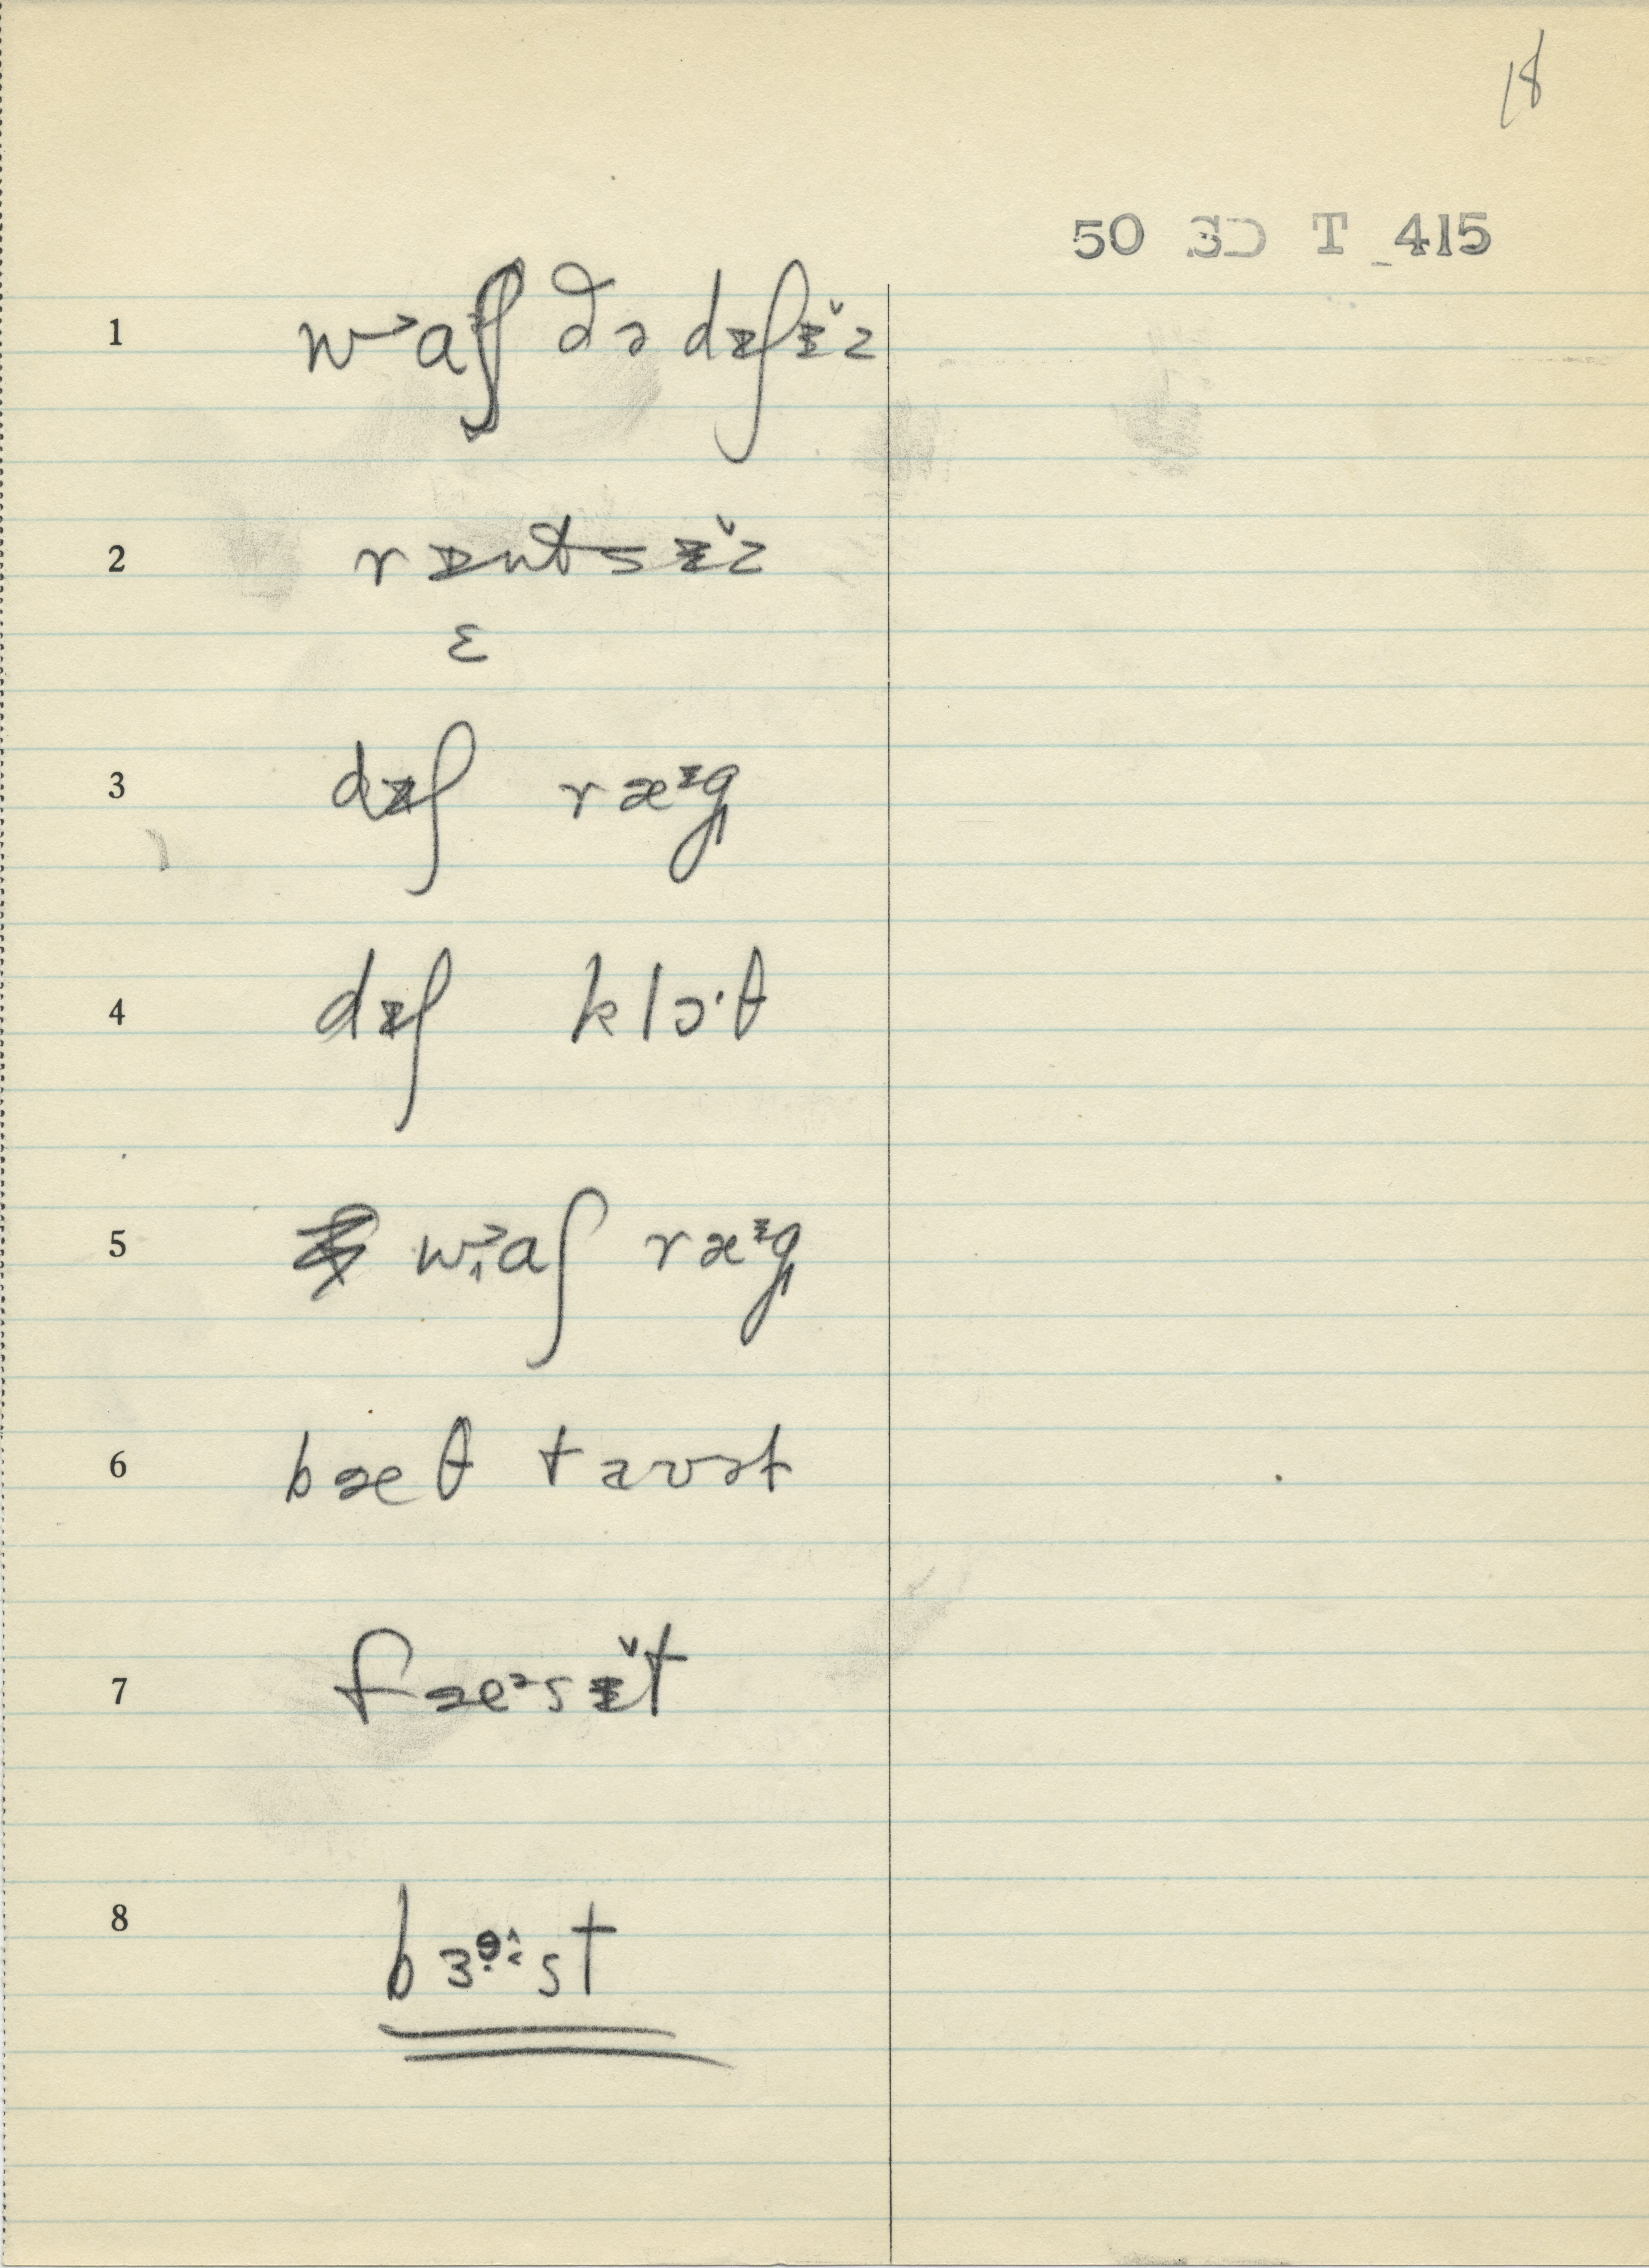 18
50 SC T 415
1 wᵓaʃ ðə dɪʃɪ̆z
2 rɪntsɪ̆z
ɛ
3 dɪʃ ræᶦg
4 dɪʃ klɔ·θ
5 wᵓaʃ ræᶦg
6 bæθ tavət
7 fæᵊsɪ̆t
8 bɜst